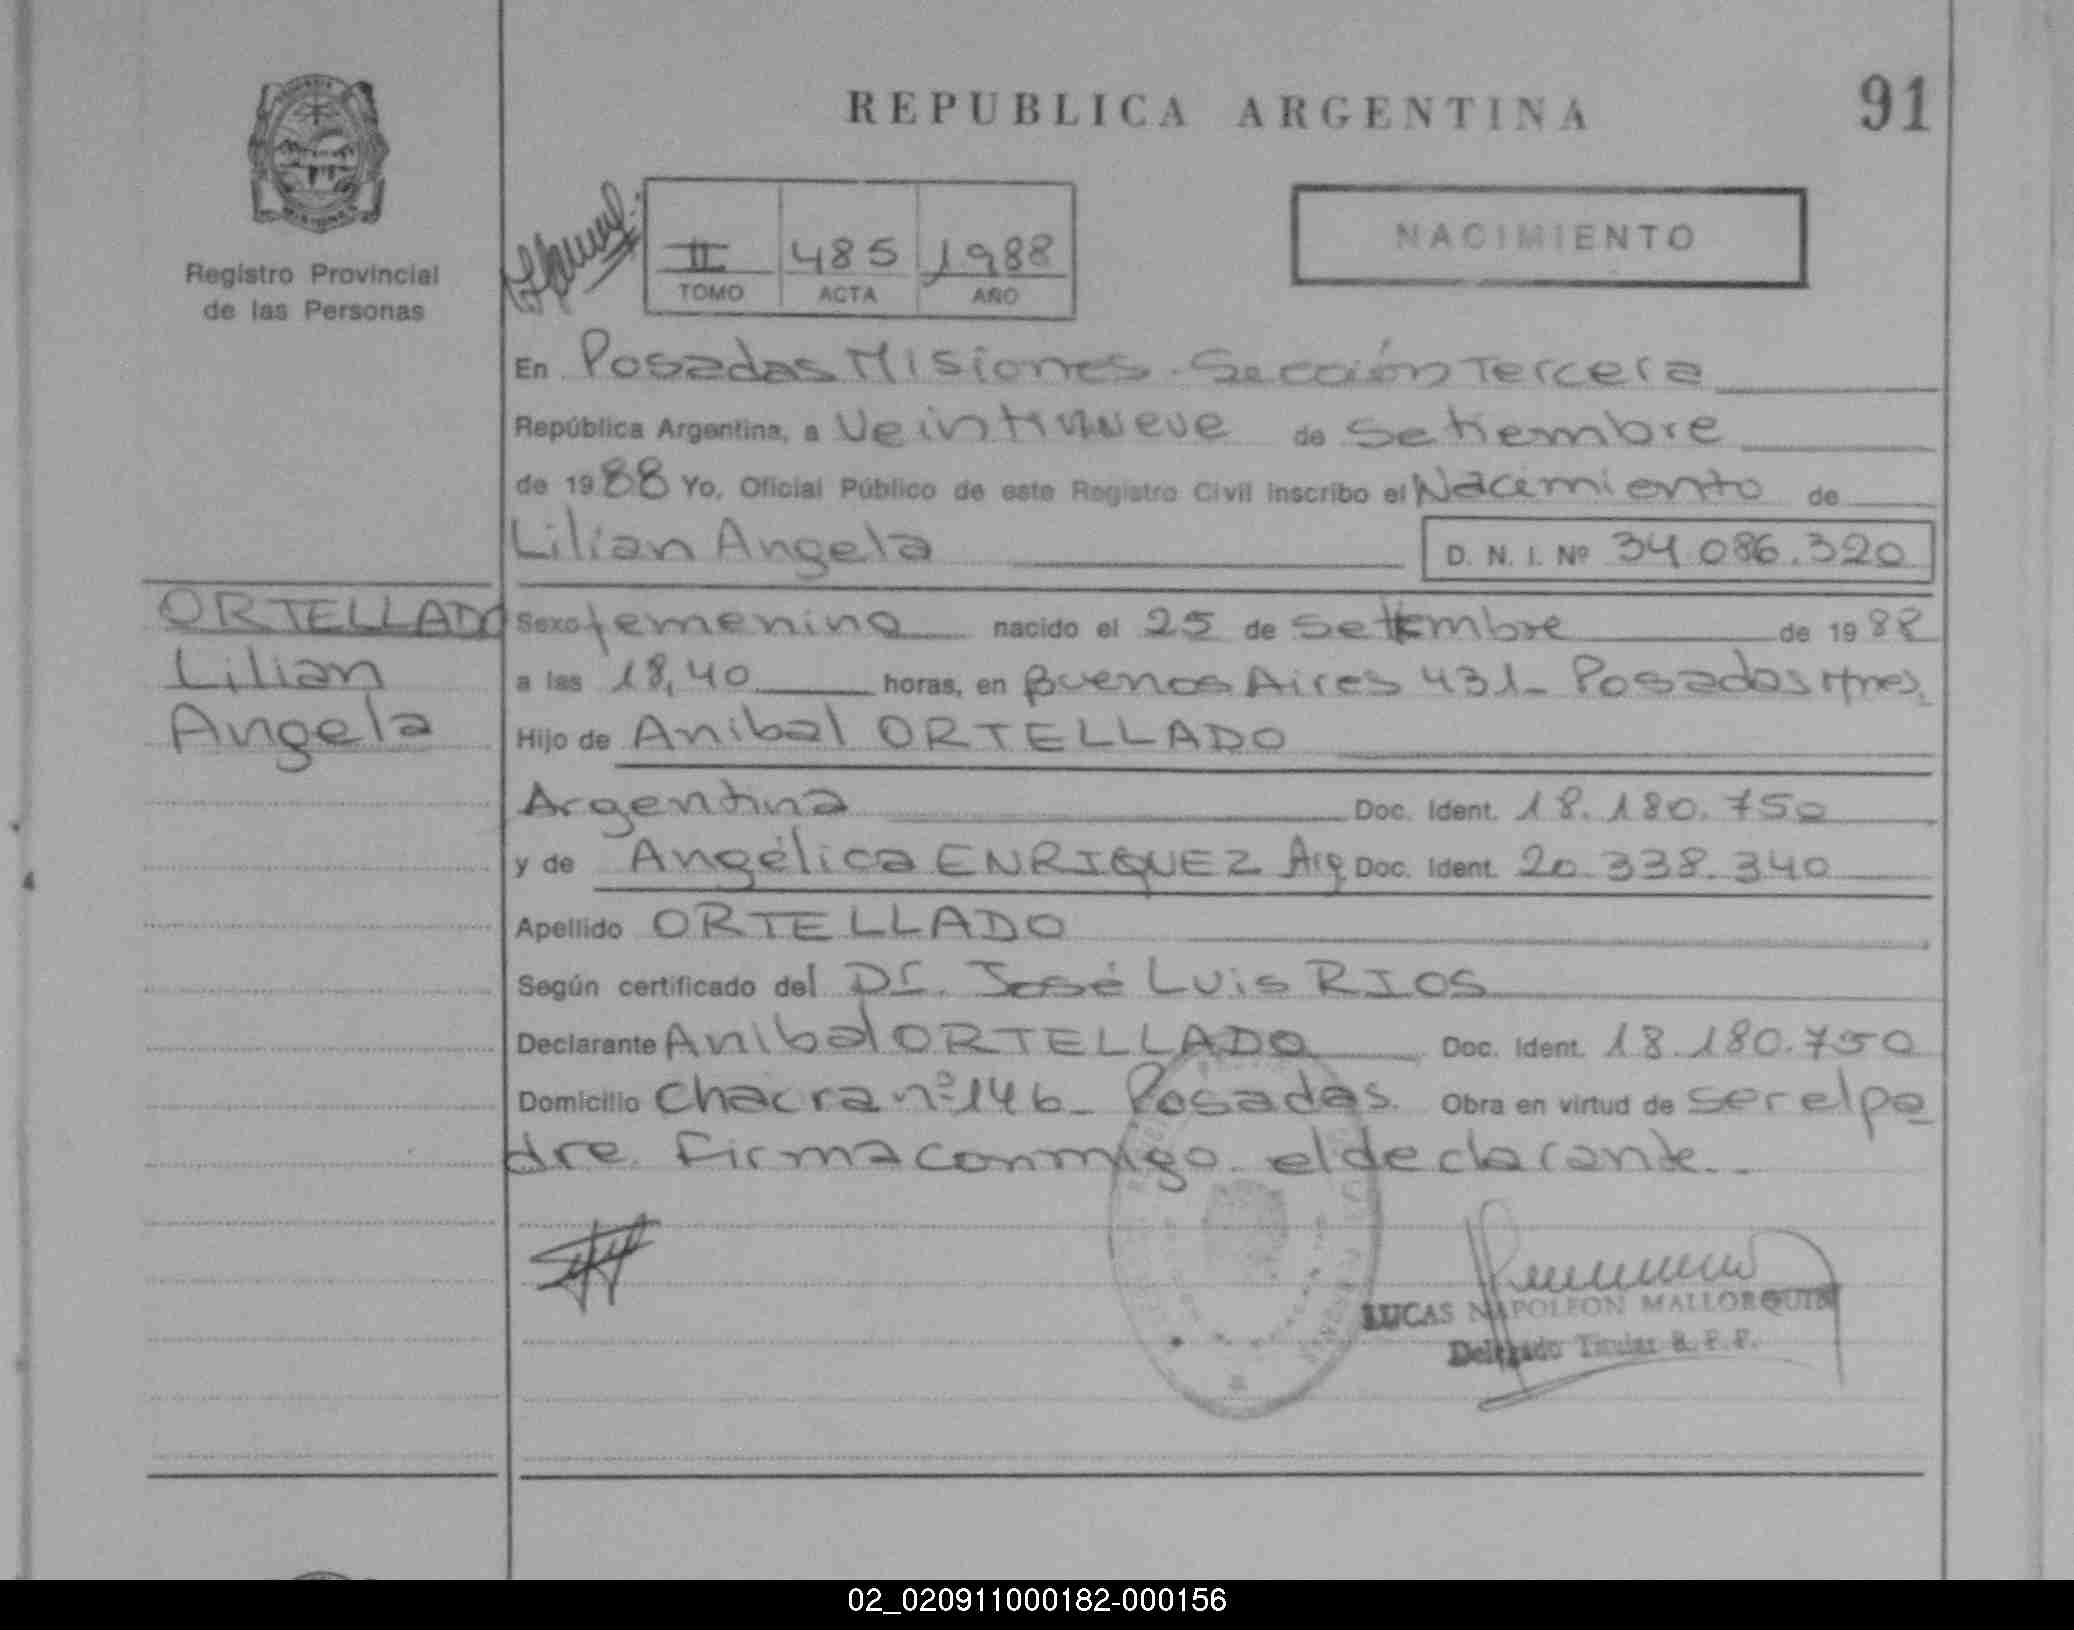 REPUBLICA ARGENTINA
91
Registro Provincial
de las Personas
II 485 1988
TOMO ACTA AÑO
NACIMIENTO
En Posadas Misiones - Sección Tercera
República Argentina, a Veintinueve de Setiembre
de 1988 Yo, Oficial Público de este Registro Civil inscribo el Nacimiento de
Lilian Angela D. N. I. Nº 34.086.320
ORTELLADO
Lilian
Angela
Sexo femenino nacido el 25 de Setiembre de 1988
a las 18,40 horas, en Buenos Aires 431- Posadas Mnes.
Hijo de Anibal ORTELLADO
Argentina Doc. Ident. 18.180.750
y de Angélica ENRIQUEZ Arg Doc. Ident. 20.338.340
Apellido ORTELLADO
Según certificado del Dr. José Luis RIOS
Declarante Anibal ORTELLADO Doc. Ident. 18.180.750
Domicilio Chacra nº 146- Posadas. Obra en virtud de ser el pa
dre. Firma conmigo el declarante.-
LUCAS NAPOLEON MALLORQUIN
Delegado Titular R. P. P.
02_020911000182-000156